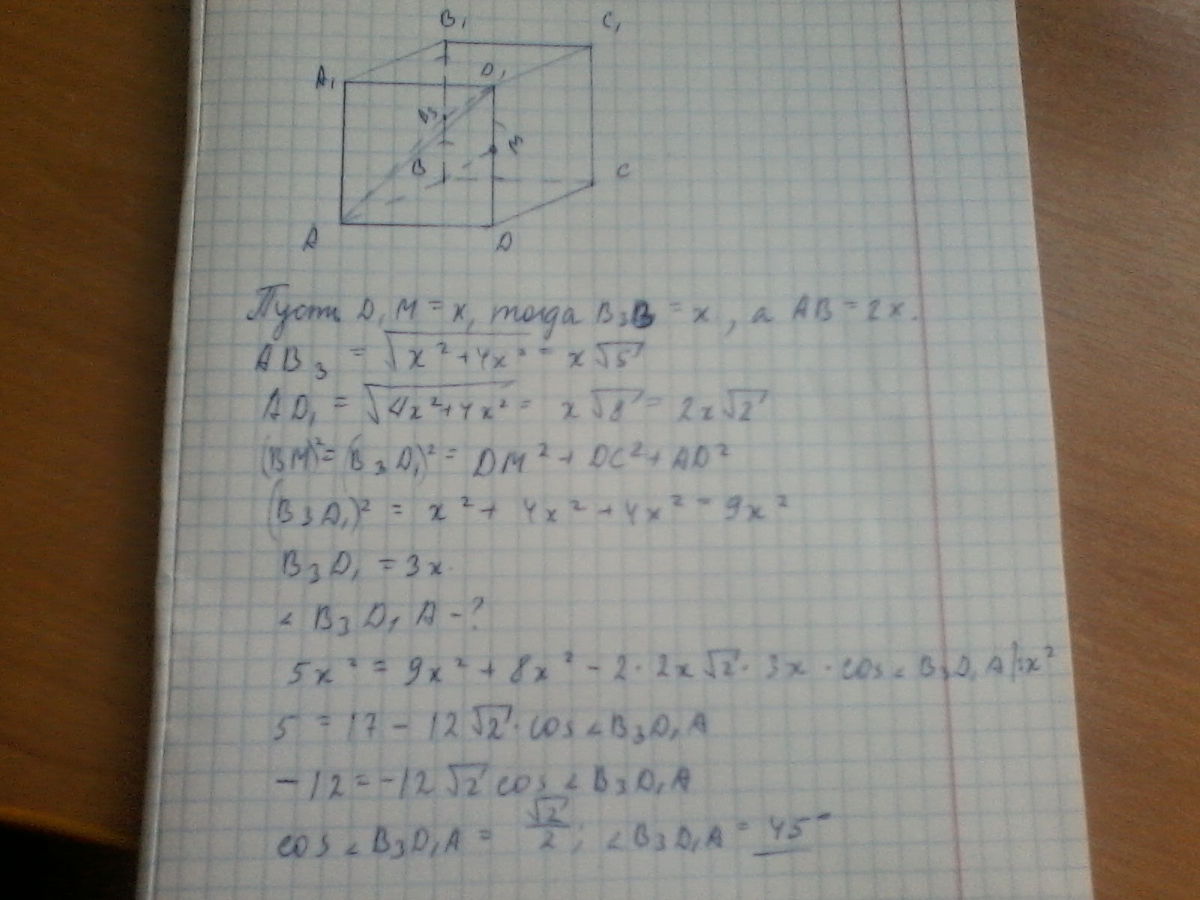 B₁ C₁
A₁ D₁
B₃
B M C
A D
Пусть D₁M = x, тогда B₃B = x, а AB = 2x.
AB₃ = √(x² + 4x²) = x√5
AD₁ = √(4x² + 4x²) = x√8 = 2x√2
(BM)² = (B₃D₁)² = DM² + DC² + AD²
(B₃D₁)² = x² + 4x² + 4x² = 9x²
B₃D₁ = 3x.
∠B₃D₁A - ?
5x² = 9x² + 8x² - 2 · 2x√2 · 3x · cos∠B₃D₁A |:x²
5 = 17 - 12√2 · cos∠B₃D₁A
-12 = -12√2 cos∠B₃D₁A
cos∠B₃D₁A = √2/2; ∠B₃D₁A = 45°